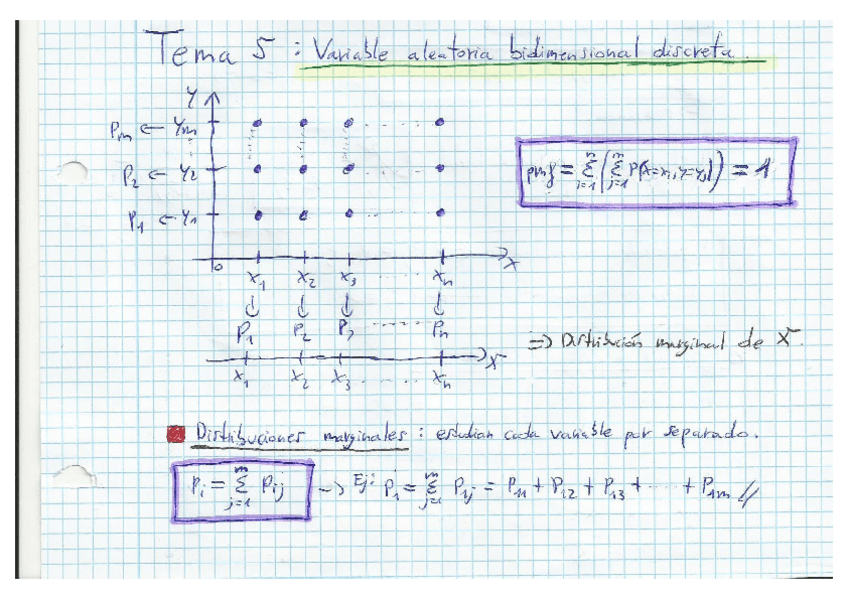 Tema 5 : Variable aleatoria bidimensional discreta.
Y
Pm ← Ym
P2 ← Y2
P1 ← Y1
pmf = Σ(i=1, n) ( Σ(j=1, m) P(X=xi, Y=yj) ) = 1
0 x1 x2 x3 ...... xn X
↓ ↓ ↓ ↓
P1 P2 P3 ...... Pn
⇒ Distribución marginal de X.
x1 x2 x3 ...... xn X
Distribuciones marginales : estudian cada variable por separado.
Pi = Σ(j=1, m) Pij → Ej: P1 = Σ(j=1, m) P1j = P11 + P12 + P13 + ...... + P1m //